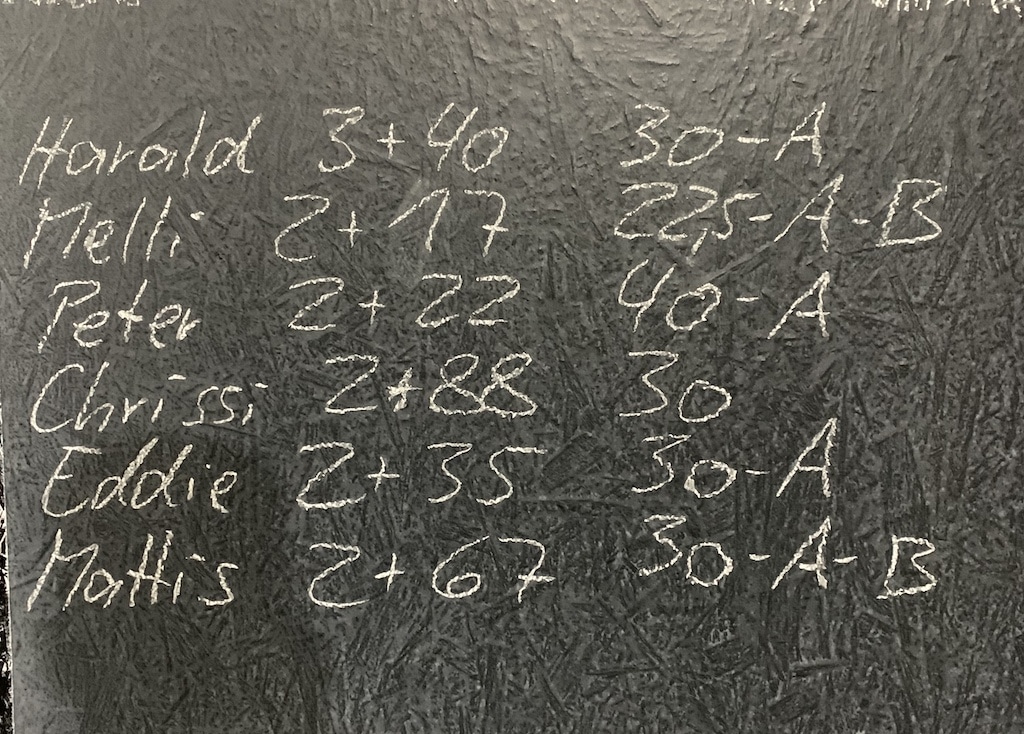 Harald 3+40 30-A
Melli 2+17 22,5-A-B
Peter 2+22 40-A
Chrissi 2+88 30
Eddie 2+35 30-A
Mattis 2+67 30-A-B